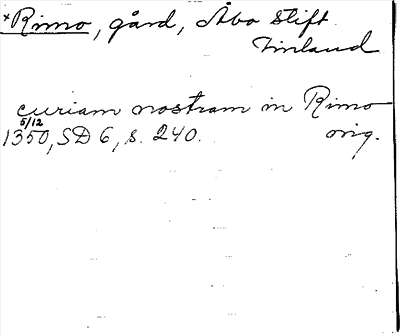 *Rimo, gård, Åbo stift
Finland
curiam nostram in Rimo
5/12
1350, SD 6, s. 240. orig.